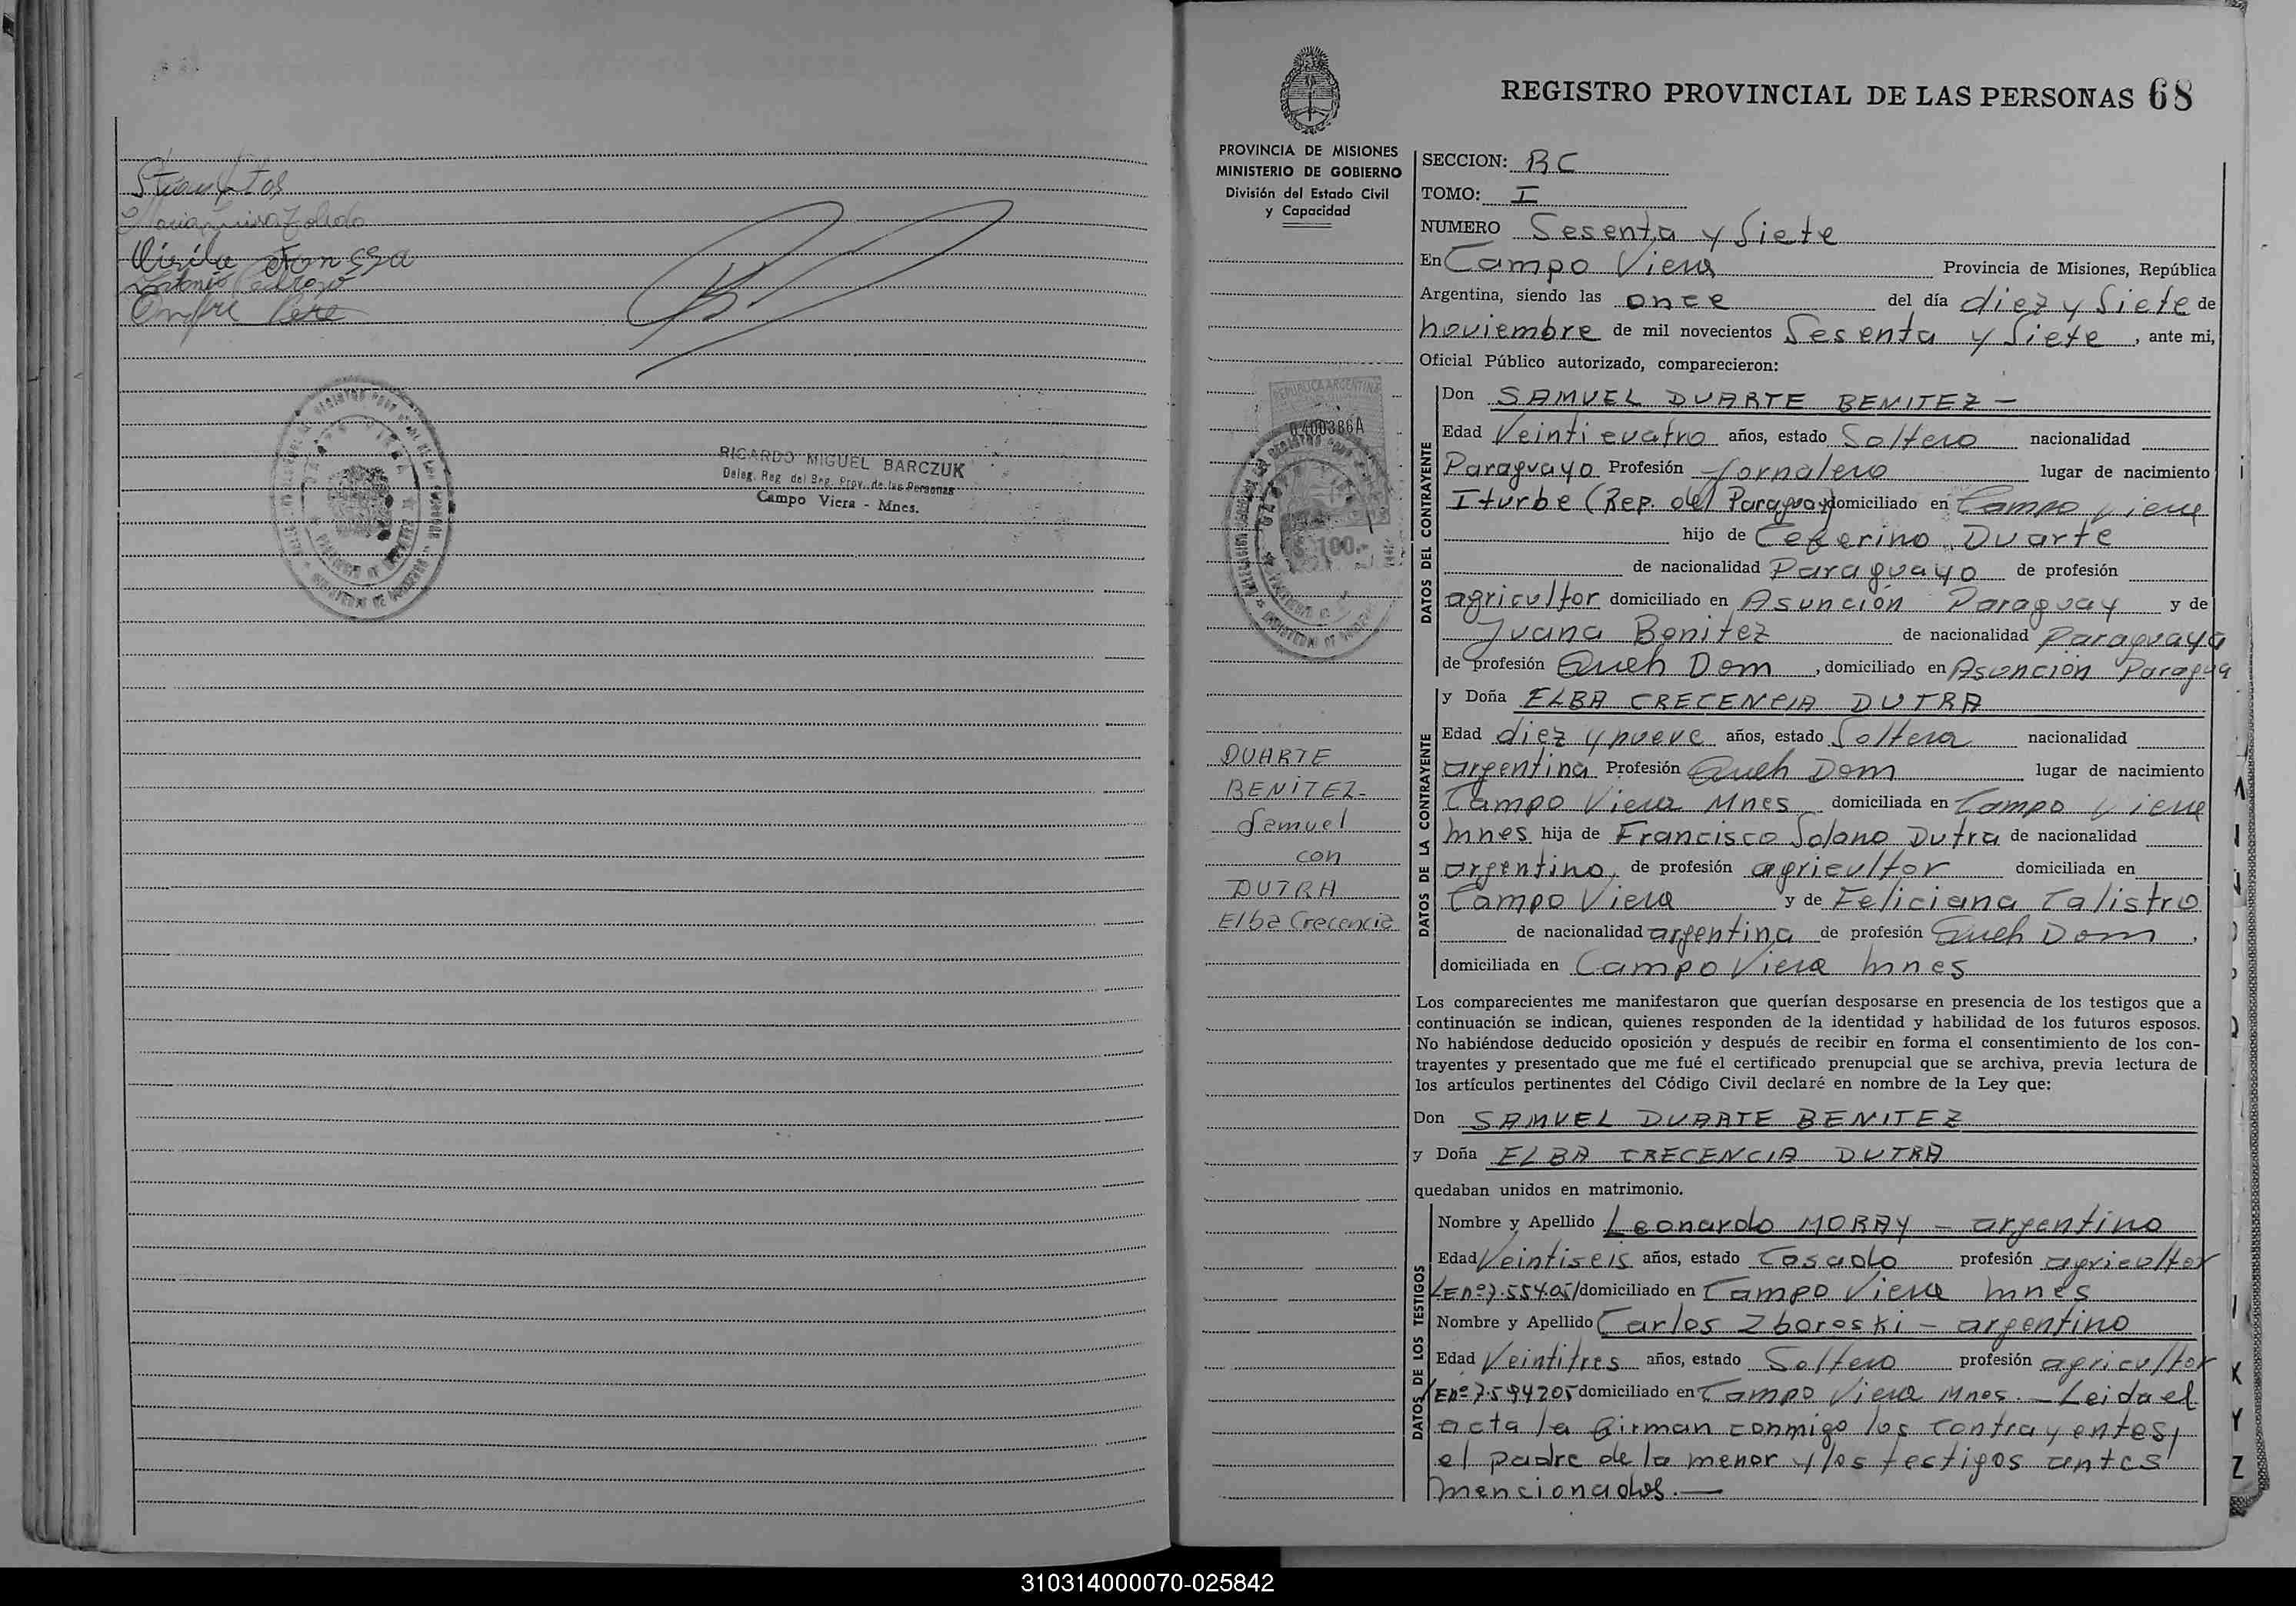 Maria Luisa Toledo
Cirila Fonseca
Antonio Cardozo
Onofre Pere
RICARDO MIGUEL BARCZUK
Deleg. Reg. del Reg. Prov. de las Personas
Campo Viera - Mnes.
REGISTRO PROVINCIAL DE LAS PERSONAS 68
PROVINCIA DE MISIONES
MINISTERIO DE GOBIERNO
División del Estado Civil
y Capacidad
REPUBLICA ARGENTINA
0400386A
$ 100.-
DUARTE
BENITEZ-
Samuel
con
DUTRA
Elba Crecencia
SECCION: BC
TOMO: I
NUMERO Sesenta y Siete
En Campo Viera Provincia de Misiones, República
Argentina, siendo las once del día diez y Siete de
noviembre de mil novecientos Sesenta y Siete, ante mi,
Oficial Público autorizado, comparecieron:
DATOS DEL CONTRAYENTE
Don SAMUEL DUARTE BENITEZ -
Edad Veinticuatro años, estado Soltero nacionalidad
Paraguayo Profesión Jornalero lugar de nacimiento
Iturbe (Rep. del Paraguay) domiciliado en Campo Viera
hijo de Ceferino Duarte
de nacionalidad Paraguayo de profesión
agricultor domiciliado en Asunción Paraguay y de
Juana Benitez de nacionalidad Paraguaya
de profesión Queh Dom, domiciliado en Asunción Paragua
DATOS DE LA CONTRAYENTE
y Doña ELBA CRECENCIA DUTRA
Edad diez y nueve años, estado Soltera nacionalidad
argentina Profesión Queh Dom lugar de nacimiento
Campo Viera Mnes domiciliada en Campo Viera
Mnes hija de Francisco Solano Dutra de nacionalidad
argentino, de profesión agricultor domiciliada en
Campo Viera y de Feliciana Calistro
de nacionalidad argentina de profesión Queh Dom,
domiciliada en Campo Viera Mnes
Los comparecientes me manifestaron que querían desposarse en presencia de los testigos que a
continuación se indican, quienes responden de la identidad y habilidad de los futuros esposos.
No habiéndose deducido oposición y después de recibir en forma el consentimiento de los con-
trayentes y presentado que me fué el certificado prenupcial que se archiva, previa lectura de
los artículos pertinentes del Código Civil declaré en nombre de la Ley que:
Don SAMUEL DUARTE BENITEZ
y Doña ELBA CRECENCIA DUTRA
quedaban unidos en matrimonio.
DATOS DE LOS TESTIGOS
Nombre y Apellido Leonardo MORAY - argentino
Edad Veintiseis años, estado Casado profesión agricultor
LEnº7.554.051 domiciliado en Campo Viera Mnes
Nombre y Apellido Carlos Zboroski - argentino
Edad Veintitres años, estado Soltero profesión agricultor
LEnº7.594205 domiciliado en Campo Viera Mnes. - Leida el
acta la firman conmigo los contrayentes,
el padre de la menor y los testigos antes
mencionados. —
310314000070-025842